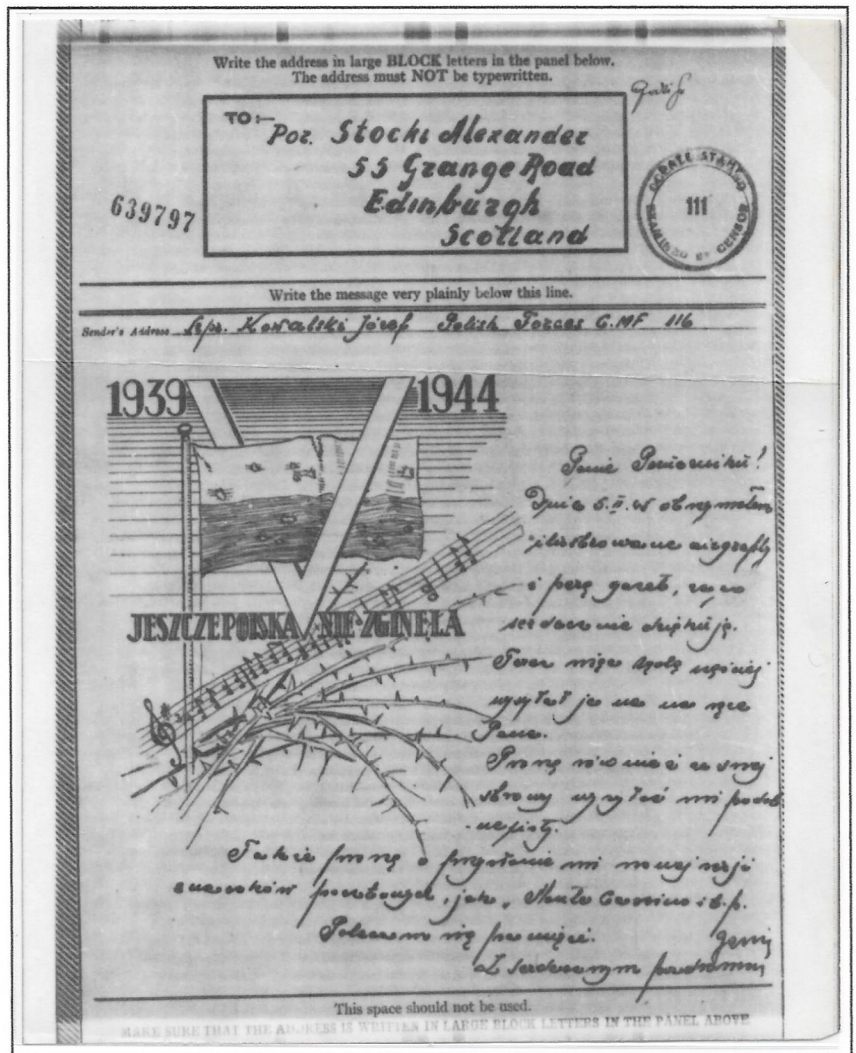 Write the address in large BLOCK letters in the panel below.
The address must NOT be typewritten.
TO:—
Por. Stocki Alexander
55 Grange Road
Edinburgh
Scotland
639797
111
EXAMINED BY CENSOR
Write the message very plainly below this line.
Sender's Address Kowalski Józef Polish Forces C.MF 116
1939 1944
JESZCZE POLSKA NIE ZGINĘŁA
Panie Poruczniku!
Dnia 5.II.45 otrzymałem
ilustrowane aerografy
i parę gazet, za co
serdecznie dziękuję.
Teraz więc będę częściej
wysyłał je na ręce
Pana.
Proszę również ze swej
strony wysyłać mi podob
ne listy.
Także proszę o przysłanie mi nowej serji
znaczków pocztowych, jak „Monte Cassino i t.p.
Polecam się pamięci.
Z serdecznym pozdrowieniem
This space should not be used.
MAKE SURE THAT THE ADDRESS IS WRITTEN IN LARGE BLOCK LETTERS IN THE PANEL ABOVE